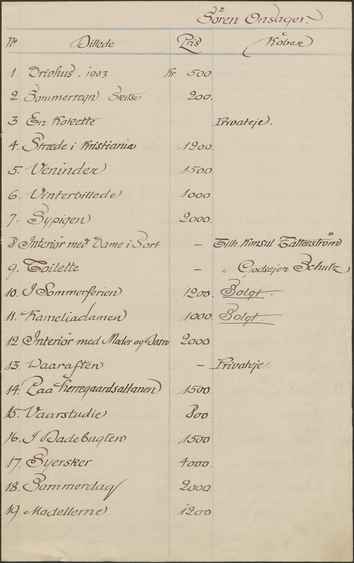 Sören Onsager
Nr Billede Pris Köber
1 Drivhus. 1903 Kr 500
2 Sommerregn Skitse 200.
3 En Kokette Privateje.
4. Stræde i Kristiania 1200.
5. Veninder 1500
6. Vinterbillede 1000
7. Sypigen 2000.
8 Interiör med Dame i Sort – Tilh. Konsul
9. Toilette – " Godsejer Schultz
10. I Sommerferien 1200. Solgt.
11. Kameliadamen 1000. Solgt.
12 Interiör med Moder og Barn 2000
13. Vaaraften – Privateje
14. Paa Herregaardsaltanen 1500
15. Vaarstudie 800
16. I Badebugten 1500
17. Syersker 4000.
18. Sommerdag 2000
19. Modellerne 1200